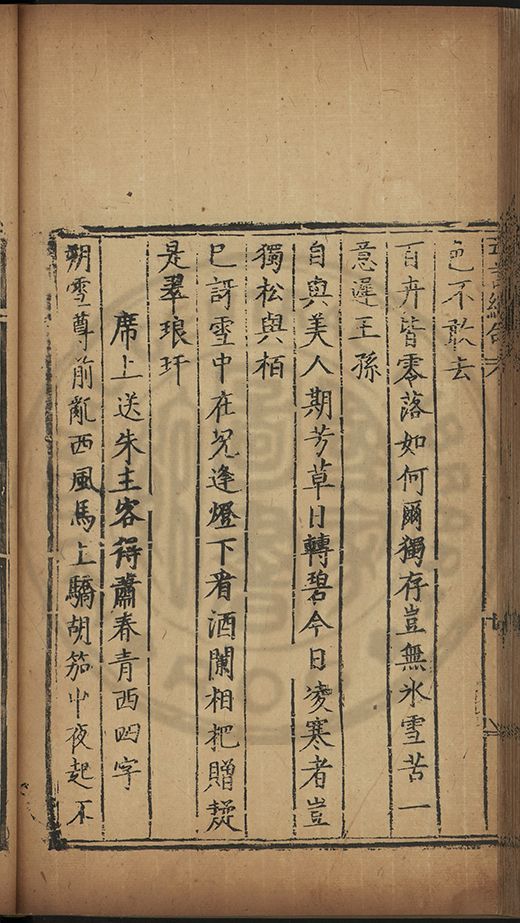 五言絕句
色不敢去
百卉皆零落如何爾獨存豈無氷雪苦一
意遲王孫
自與美人期芳草日轉碧今日凌寒者豈
獨松與栢
已訝雪中在况逢燈下看酒闌相把贈㸑
是翠琅玕
席上送朱主客得蕭春青西四字
朔雪尊前亂西風馬上驕胡笳中夜起不